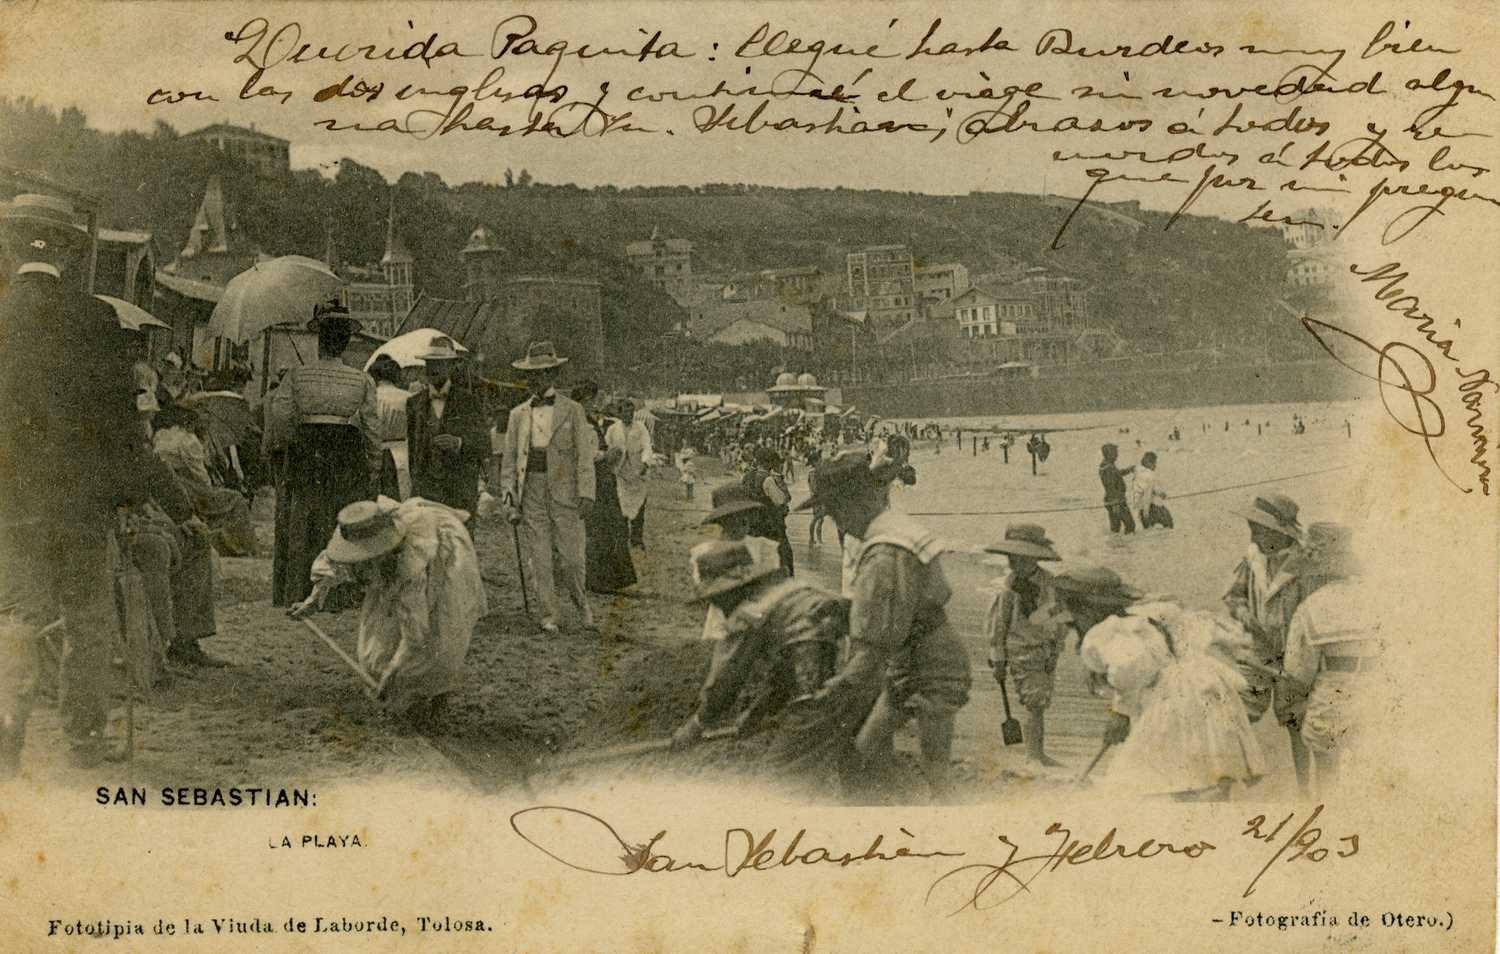 Querida Paquita: llegué hasta Burdeos muy bien
con las dos inglesas y continué el viage sin novedad algu
na hasta Sn. Sebastian; abrasos á todos y re
uerdos á todos los
que por mi pregun
ten.
Maria
San Sebastián y Febrero 21/903
SAN SEBASTIAN:
LA PLAYA.
Fototipia de la Viuda de Laborde, Tolosa.
-Fotografía de Otero.)